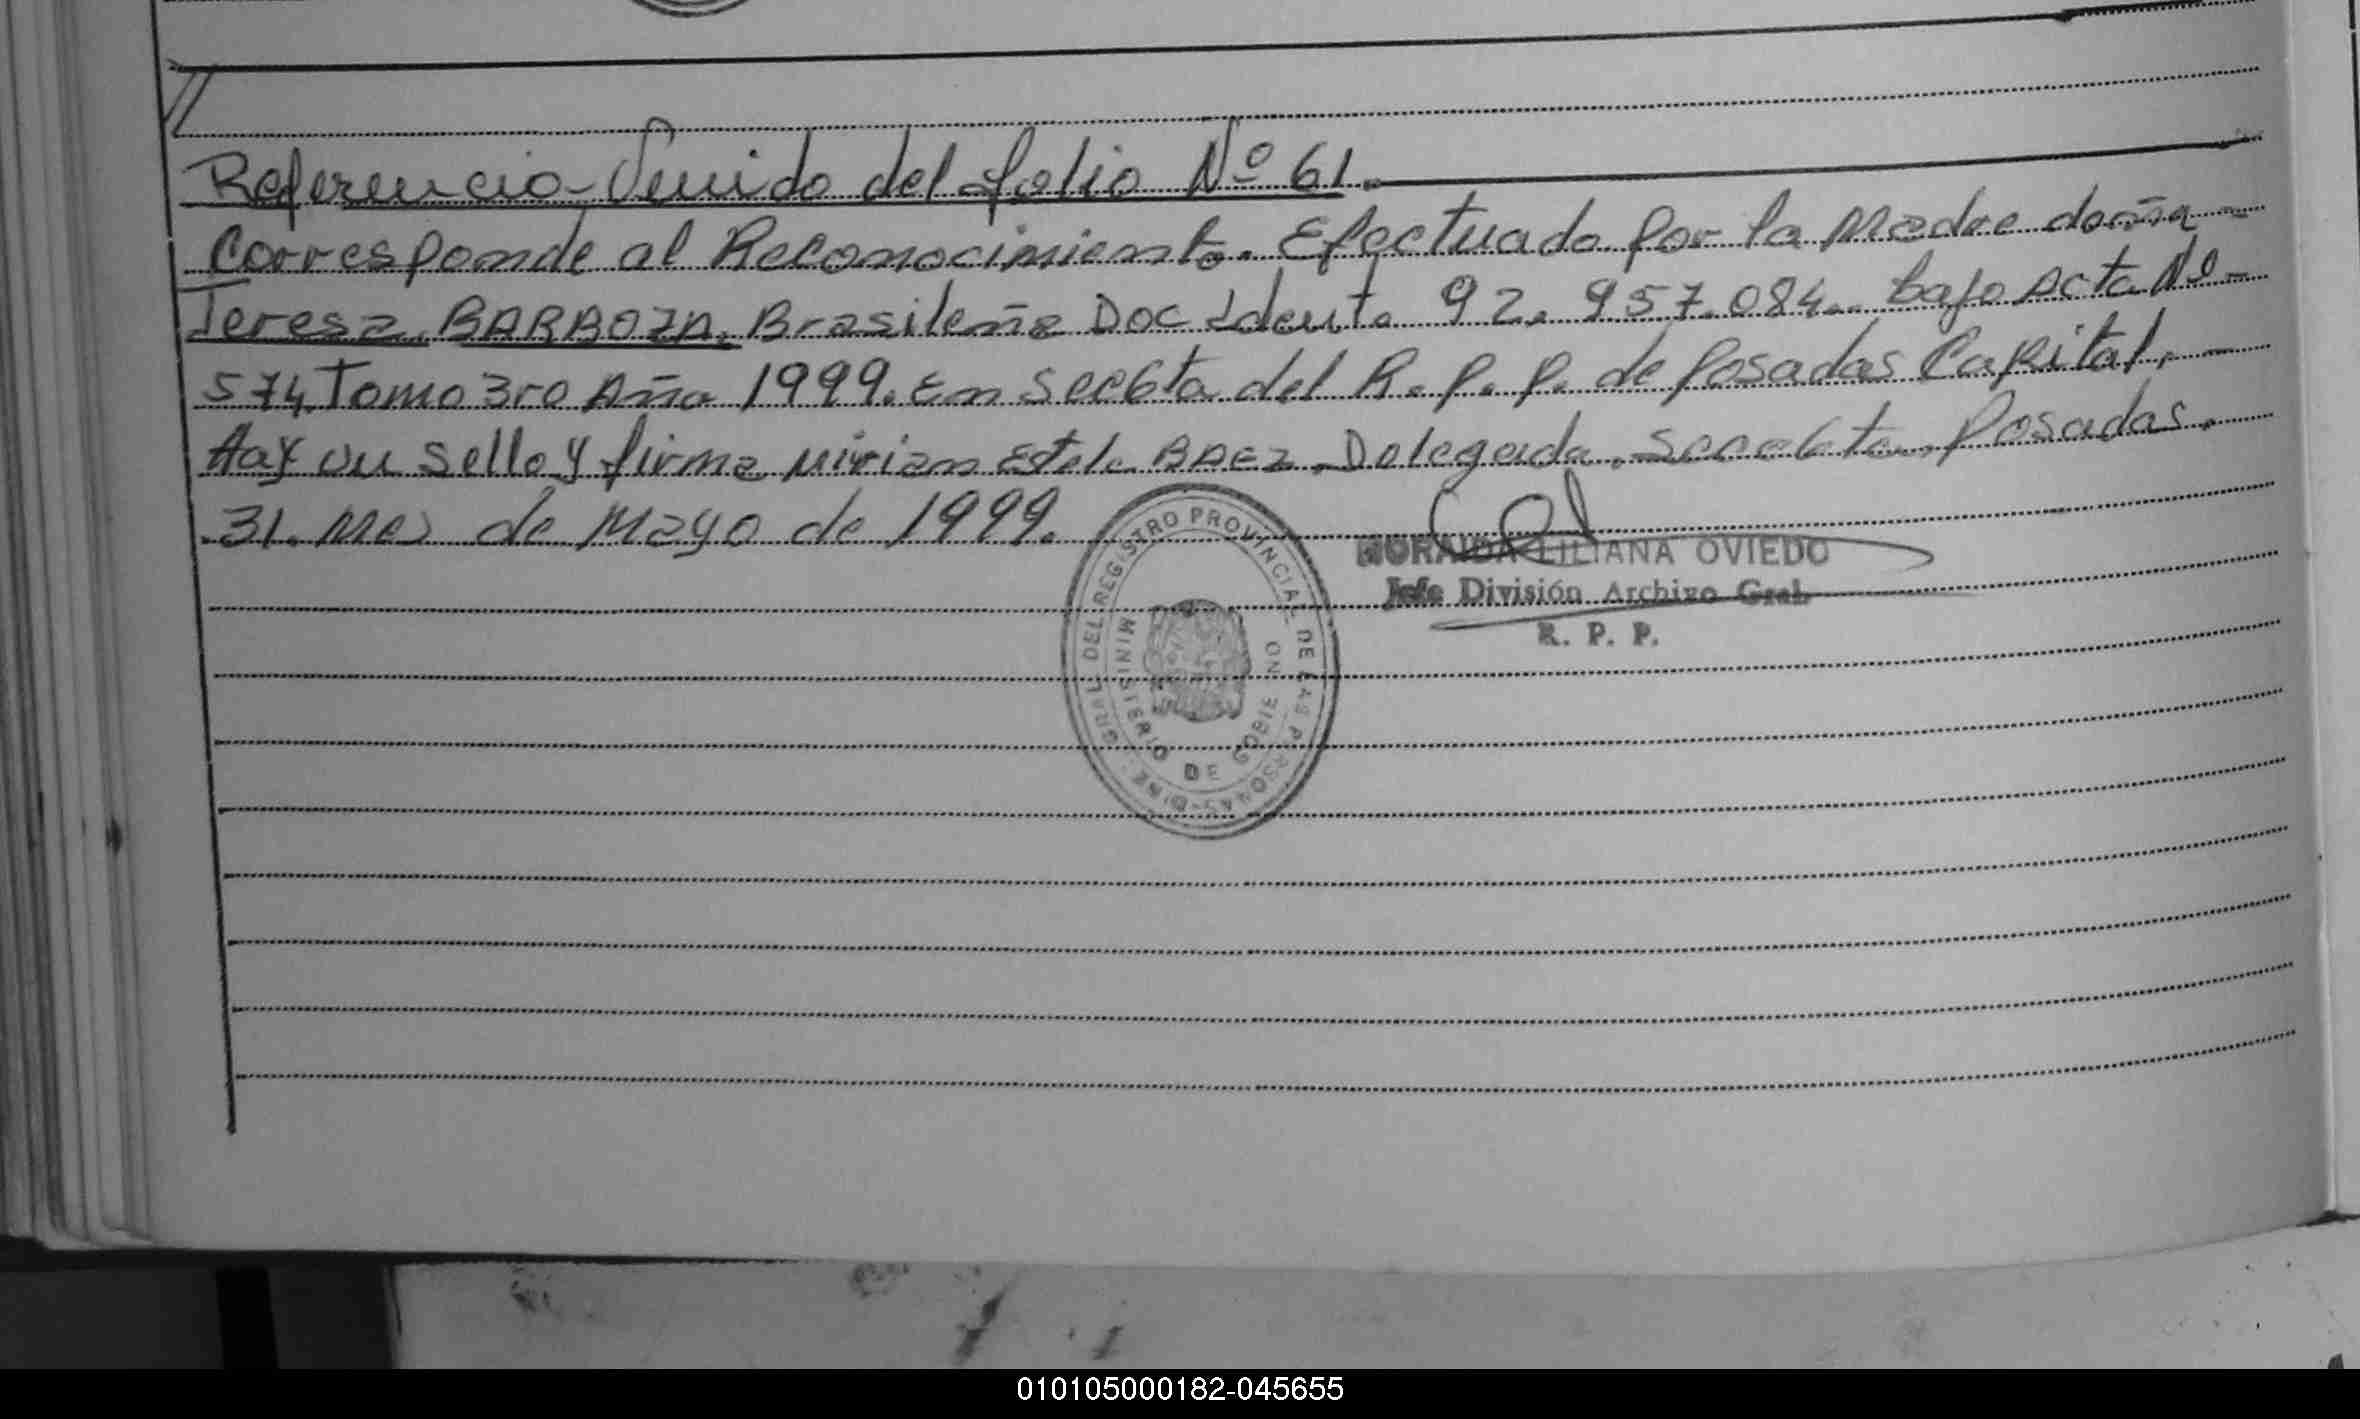 Referencia - Venido del folio Nº 61.
Corresponde al Reconocimiento. Efectuado por la Madre doña -
Teresa BARBOZA, Brasileña Doc Ident. 92.957.084.. bajo Acta Nº -
574 Tomo 3ro Año 1999. En Secbta del R.P.P. de Posadas Capital, -
Hay un sello y firma Mirian Estela BAEZ. Delegada. Seccbta. Posadas.
.31. Mes de Mayo de 1999.
DIRE. GRAL. DEL REGISTRO PROVINCIAL DE LAS PERSONAS
MINISTERIO DE GOBIERNO
NORAIDA LILIANA OVIEDO
Jefe División Archivo Gral.
R. P. P.
010105000182-045655